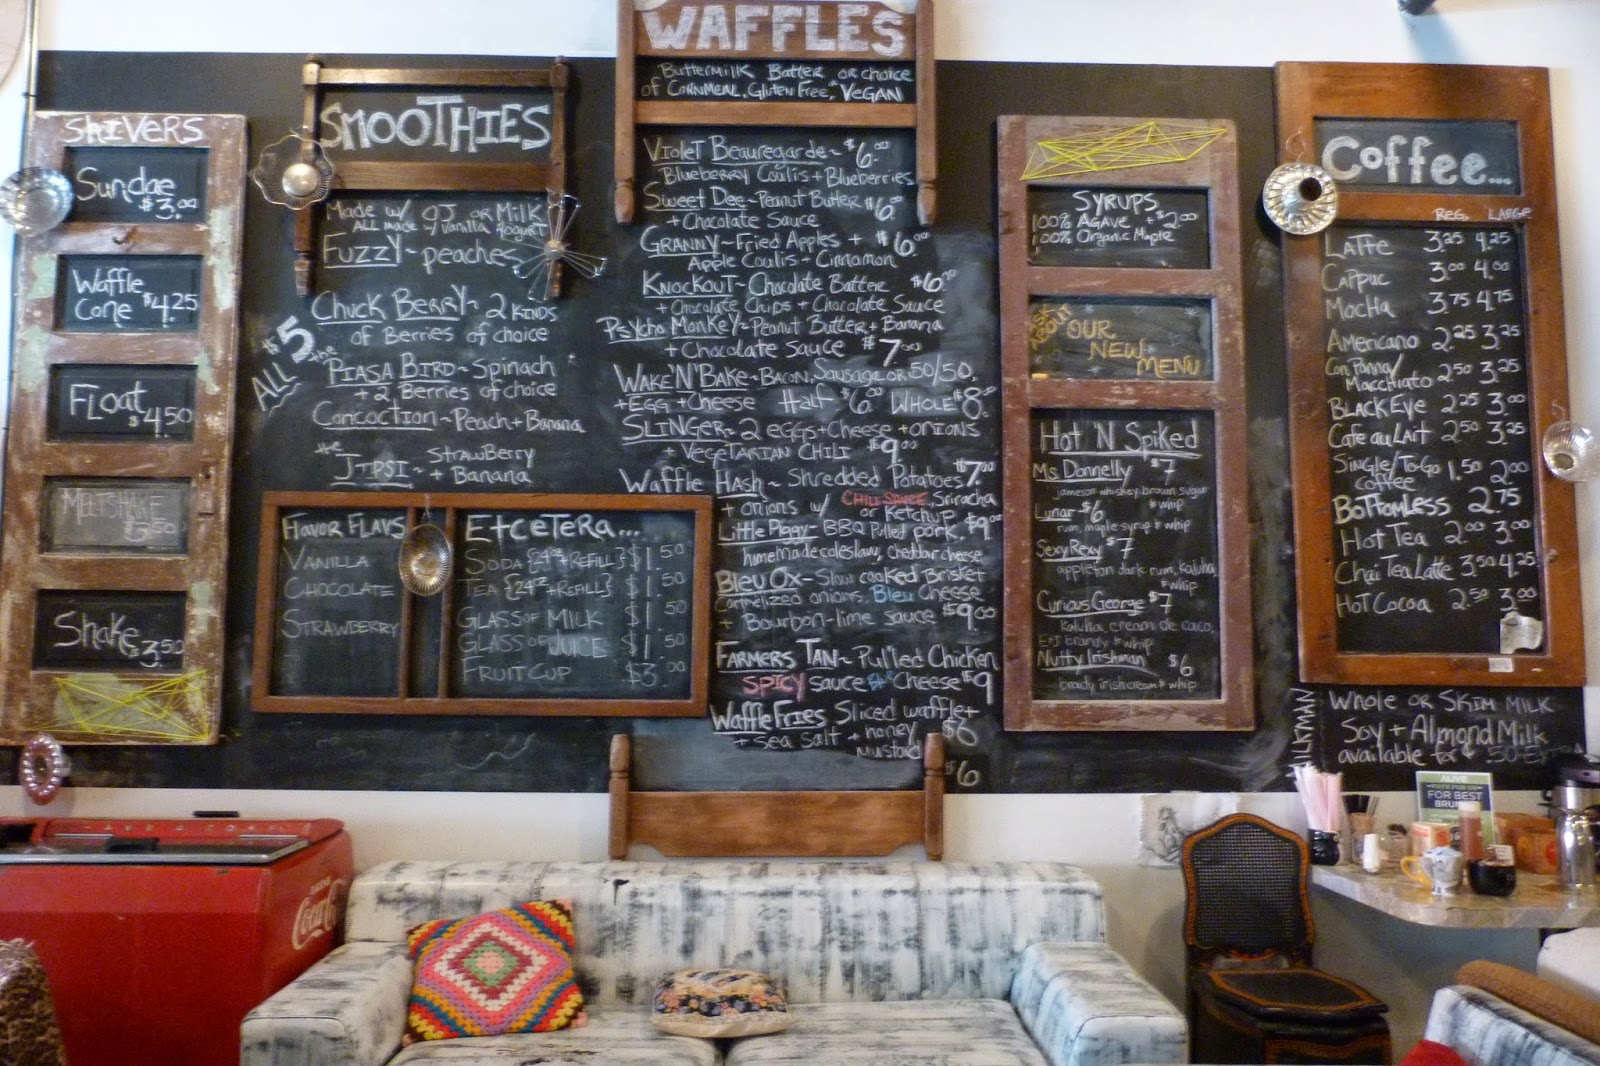 SHIVERS
Sundae
$3.00
Waffle
Cone $4.25
Float
$4.50
MELTSHAKE
$5.50
Shake
3.50
SMOOTHIES
Made w/ OJ or Milk
ALL made w/ Vanilla Yogurt
Fuzzy ~ peaches
ALL $5
Chuck Berry ~ 2 kinds
of Berries of choice
the
Piasa Bird ~ Spinach
+ 2 Berries of choice
Concoction ~ Peach + Banana
the
Jipsi ~ Strawberry
+ Banana
Flavor Flavs
Vanilla
Chocolate
Strawberry
Etcetera...
Soda {24oz + Refill} $1.50
Tea {24oz + Refill} $1.50
Glass of Milk $1.50
Glass of Juice $1.50
Fruit Cup $3.00
WAFFLES
Buttermilk Batter or choice
of Cornmeal, Gluten Free, Vegan
Violet Beauregarde ~ $6.00
Blueberry Coulis + Blueberries
Sweet Dee ~ Peanut Butter $6.00
+ Chocolate Sauce
Granny ~ Fried Apples + $6.00
Apple Coulis + Cinnamon
Knockout ~ Chocolate Batter $6.00
+ Chocolate Chips + Chocolate Sauce
Psycho Monkey ~ Peanut Butter + Banana
+ Chocolate Sauce $7.00
Wake 'N' Bake ~ Bacon, Sausage or 50/50,
+ Egg + Cheese Half $6.00 Whole $8.00
Slinger ~ 2 eggs + Cheese + onions
+ Vegetarian Chili $9.00
Waffle Hash ~ Shredded Potatoes $7.00
+ onions w/ CHILI SAUCE, Sriracha
or Ketchup
Little Piggy ~ BBQ Pulled pork, $9.00
homemade coleslaw, cheddar cheese
Bleu Ox ~ Slow cooked Brisket
Carmelized onions, Bleu Cheese
+ Bourbon-lime sauce $9.00
Farmers Tan ~ Pulled Chicken
SPICY sauce Bleu Cheese $9
Waffle Fries Sliced waffle +
+ sea salt + honey $6
mustard
$6
SYRUPS
100% Agave + $2.00
100% Organic Maple
ASK ABOUT OUR
NEW
MENU
Hot 'N Spiked
Ms. Donnelly $7
jameson whiskey, brown sugar
+ whip
Lunar $6
rum, maple syrup + whip
Sexy Rexy $7
appleton dark rum, kaluha,
+ whip
Curious George $7
kaluha, cream de caco,
E+J brandy + whip
Nutty Irishman $6
brady irish cream + whip
Coffee...
REG. LARGE
Latte 3.25 4.25
Cappuc 3.00 4.00
Mocha 3.75 4.75
Americano 2.25 3.25
Con Panna/
Macchiato 2.50 3.25
BlackEye 2.25 3.00
Cafe au Lait 2.50 3.25
Single/To-Go
Coffee 1.50 2.00
Bottomless 2.75
Hot Tea 2.00 3.00
Chai Tea Latte 3.50 4.25
Hot Cocoa 2.50 3.00
MILKMAN
Whole or Skim Milk
Soy + Almond Milk
available for $.50 Extra
DRINK
Coca-Cola
ALIVE
VOTE FOR US
FOR BEST